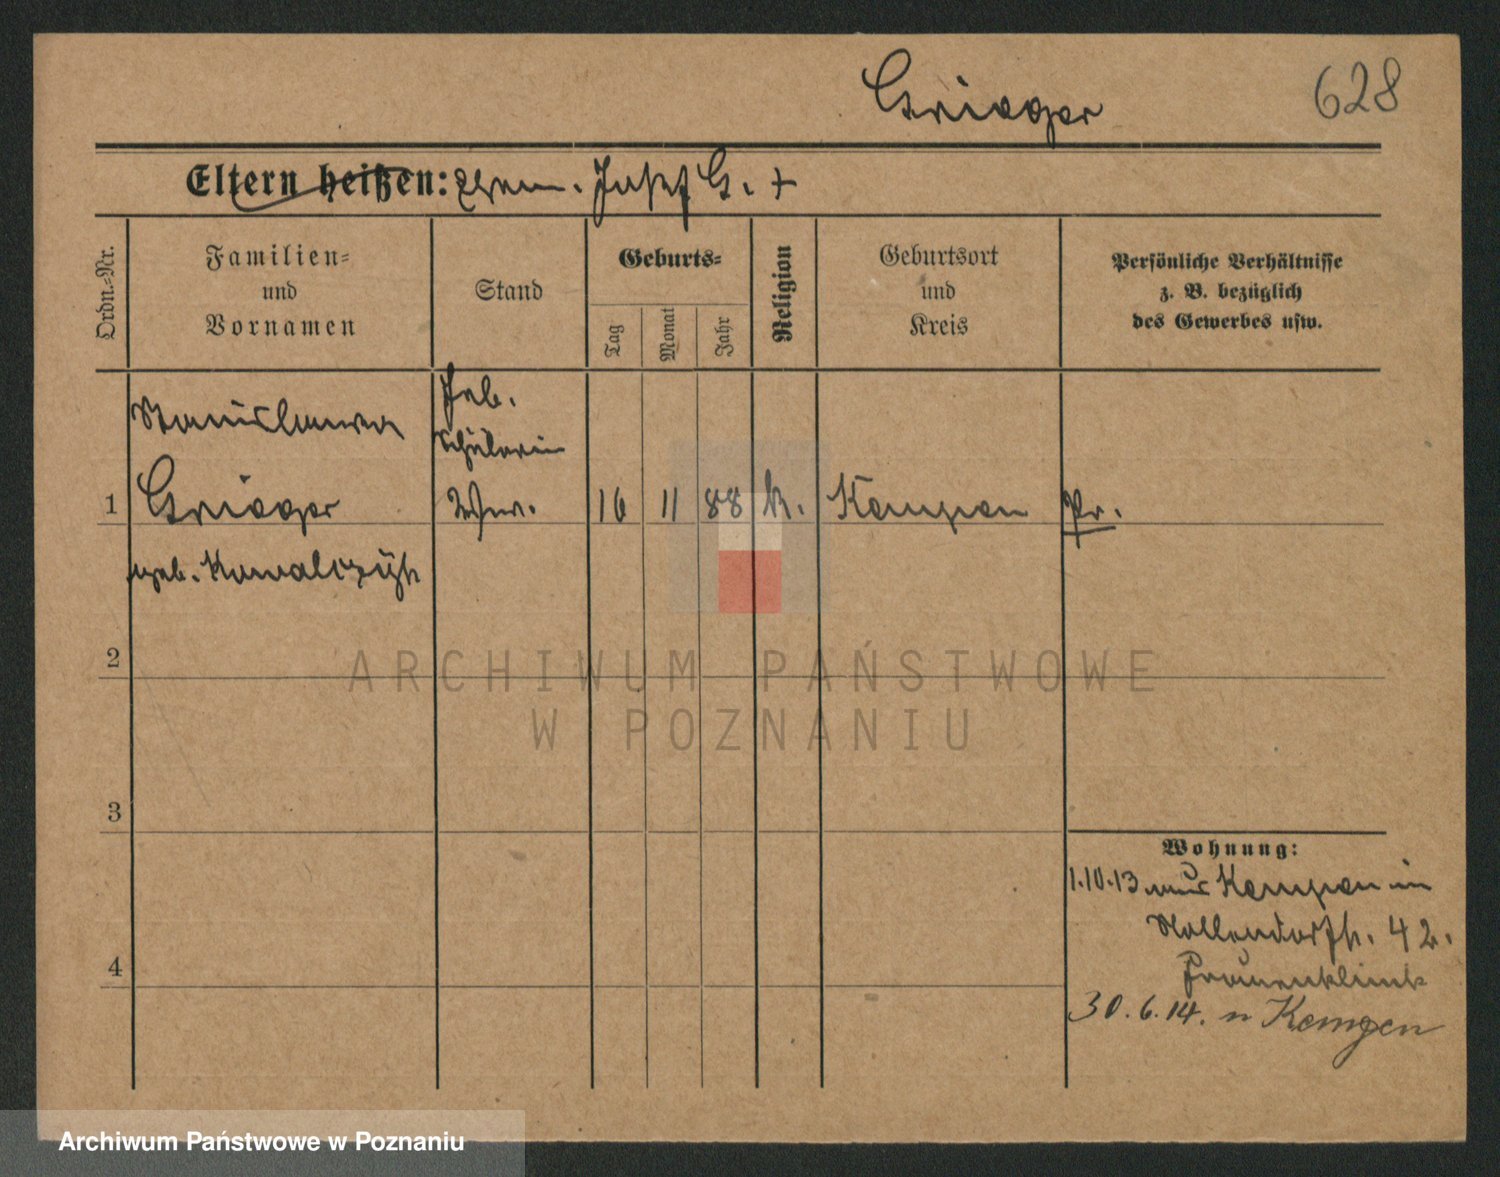 Grieger 628
Eltern heißen: Ehem. Josef G. +
Ordn.-Nr.
Familien=
und
Vornamen
Stand
Geburts=
Tag
Monat
Jahr
Religion
Geburtsort
und
Kreis
Persönliche Verhältnisse
z. B. bezüglich
des Gewerbes usw.
Stanislawa
Heb.
Schülerin
1 Grieger Wwe. 16 11 88 k. Kempen Pr.
geb. Kowalczyk
2
3
4
Wohnung:
1.10.13 aus Kempen in
Nollendorfstr. 42.
Frauenklinik
30.6.14. n Kempen
ARCHIWUM PAŃSTWOWE
W POZNANIU
Archiwum Państwowe w Poznaniu